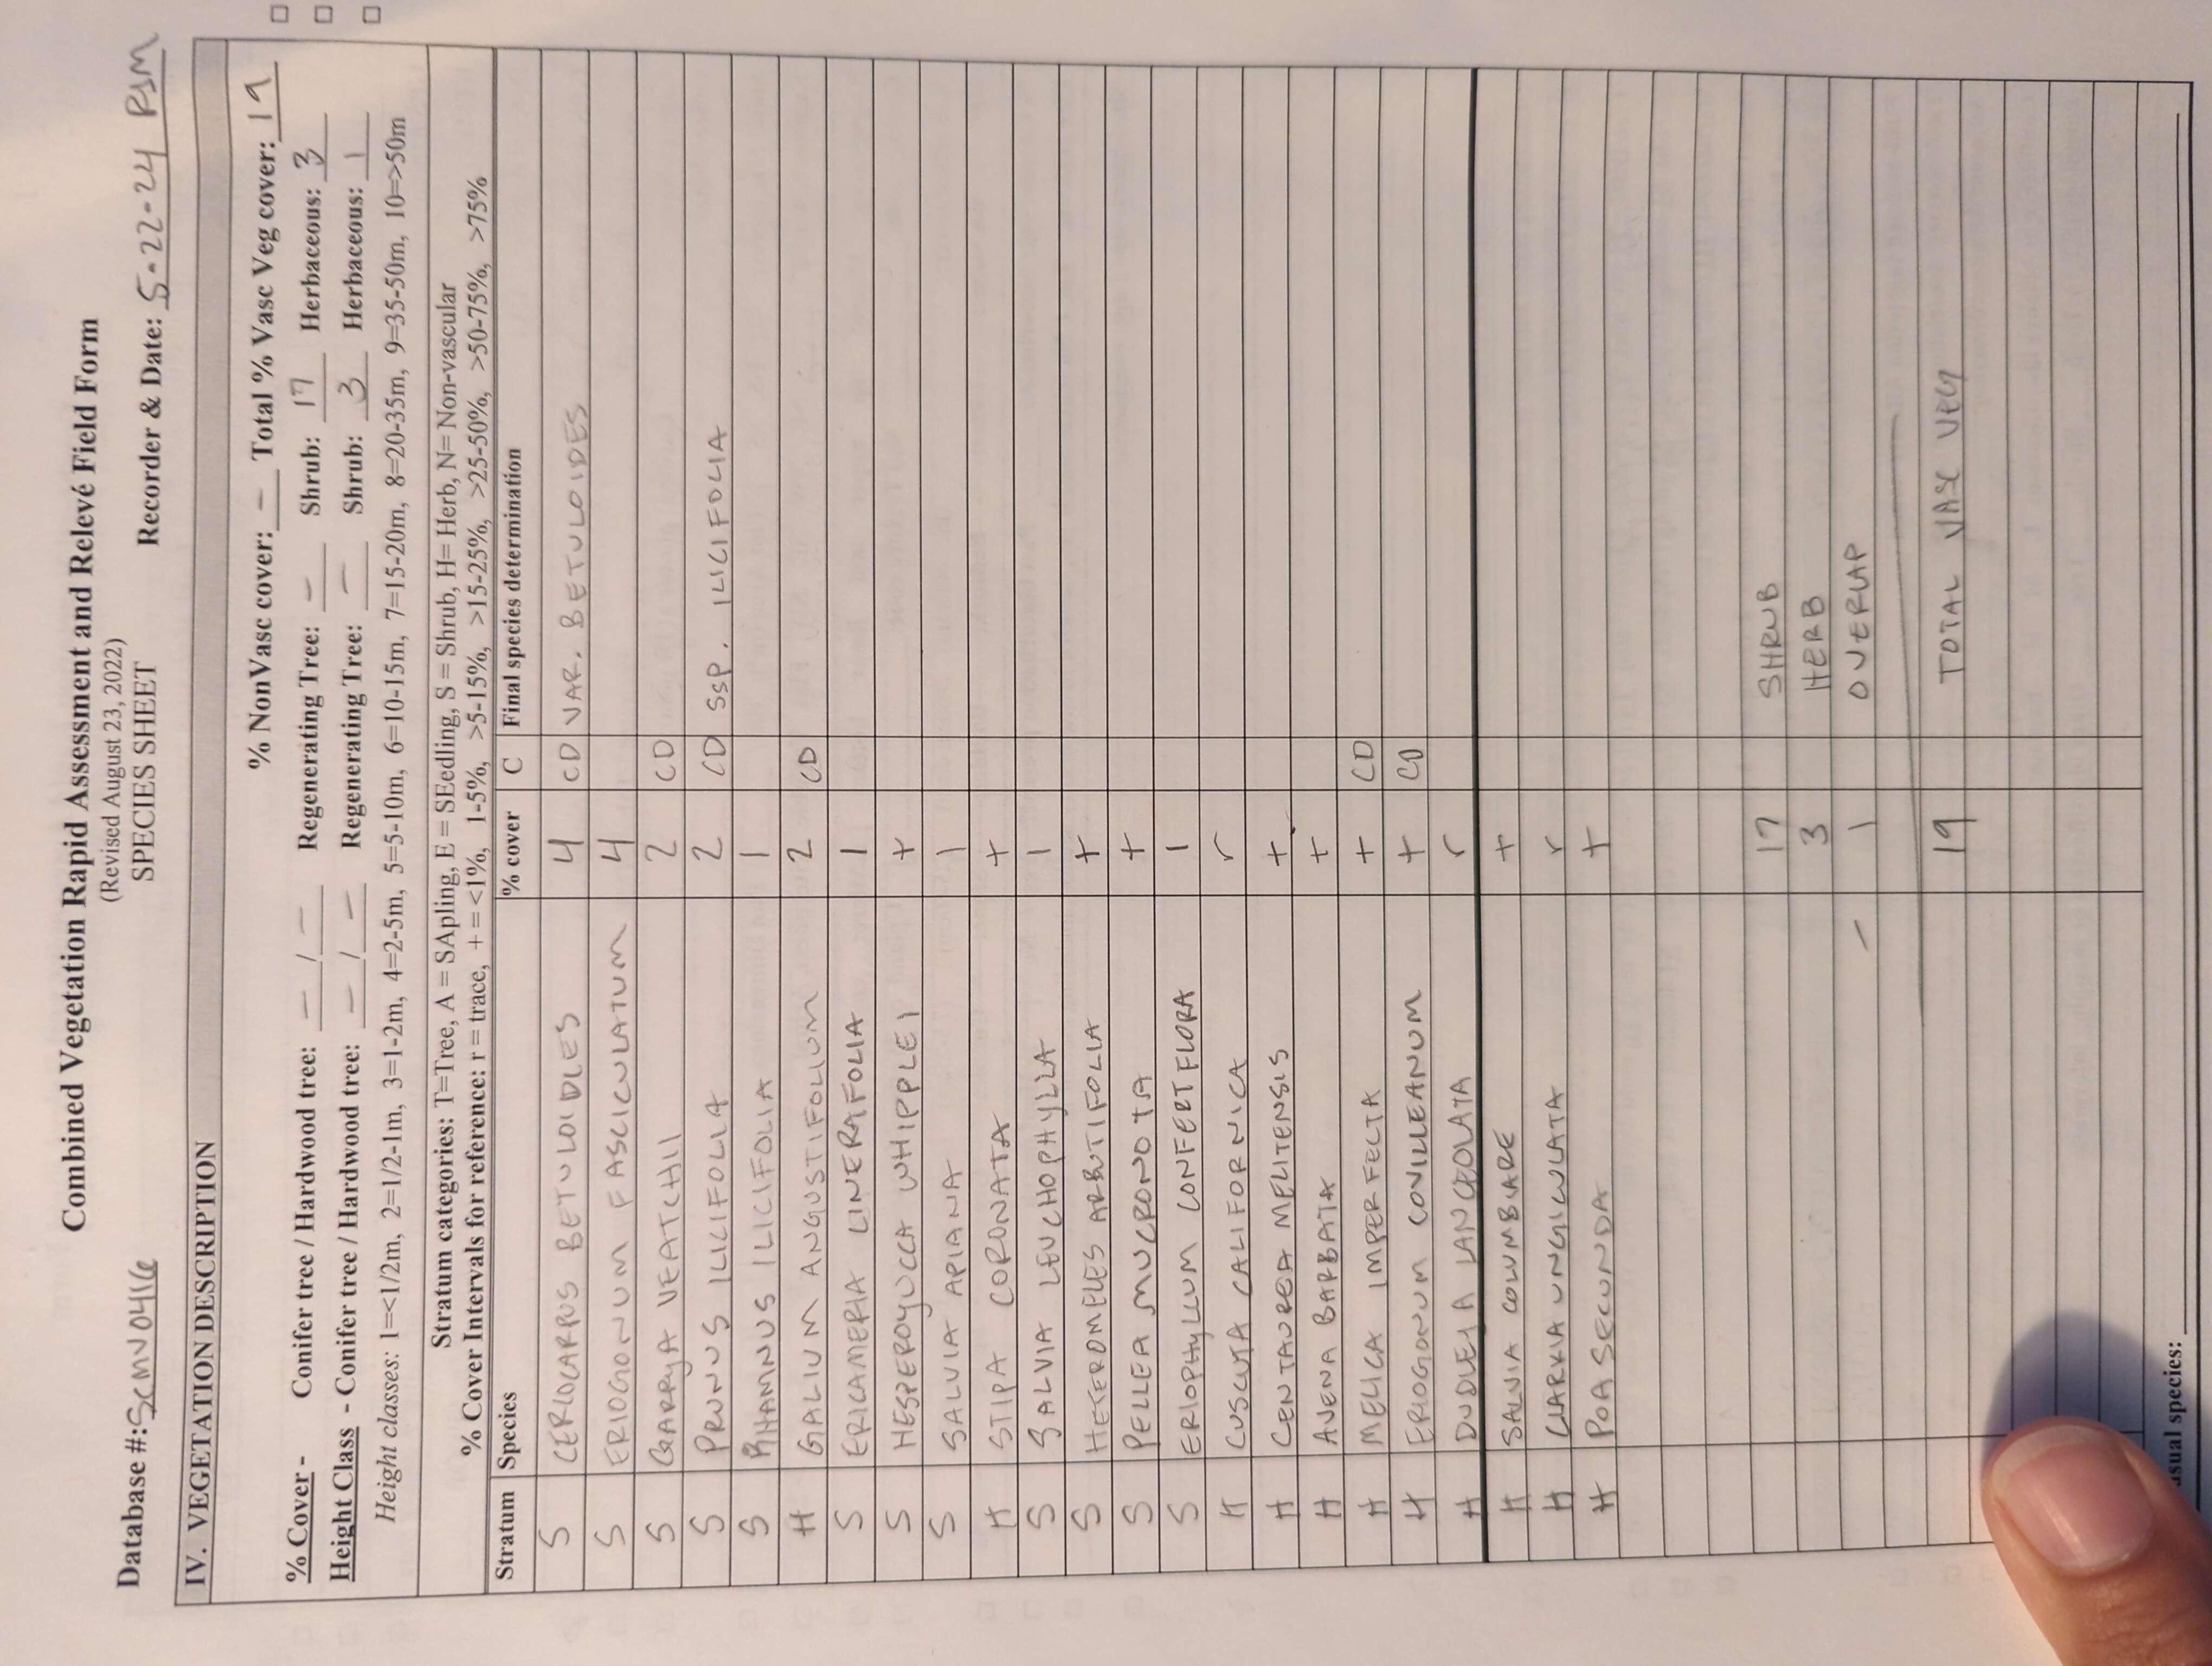 Combined Vegetation Rapid Assessment and Relevé Field Form
(Revised August 23, 2022)
SPECIES SHEET
Database #: SCMV0416 Recorder & Date: 5-22-24 PSM
IV. VEGETATION DESCRIPTION
% NonVasc cover: – Total % Vasc Veg cover: 19
% Cover - Conifer tree / Hardwood tree: – / – Regenerating Tree: – Shrub: 17 Herbaceous: 3
Height Class - Conifer tree / Hardwood tree: – / – Regenerating Tree: – Shrub: 3 Herbaceous: 1
Height classes: 1=<1/2m, 2=1/2-1m, 3=1-2m, 4=2-5m, 5=5-10m, 6=10-15m, 7=15-20m, 8=20-35m, 9=35-50m, 10=>50m
Stratum categories: T=Tree, A = SApling, E = SEedling, S = Shrub, H= Herb, N= Non-vascular
% Cover Intervals for reference: r = trace, + = <1%, 1-5%, >5-15%, >15-25%, >25-50%, >50-75%, >75%
Stratum Species % cover C Final species determination
S CERCOCARPUS BETULOIDES 4 CD VAR. BETULOIDES
S ERIOGONUM FASCICULATUM 4
S GARRYA VEATCHII 2 CD
S PRUNUS ILICIFOLIA 2 CD SSP. ILICIFOLIA
S RHAMNUS ILICIFOLIA 1
H GALIUM ANGUSTIFOLIUM 2 CD
S ERICAMERIA LINERAFOLIA 1
S HESPEROYUCCA WHIPPLEI +
S SALVIA APIANA 1
H STIPA CORONATA +
S SALVIA LEUCHOPHYLLA 1
S HETEROMELES ARBUTIFOLIA +
S PELLEA MUCRONOTA +
S ERIOPHYLLUM CONFERTFLORA 1
H CUSCUTA CALIFORNICA r
H CENTAUREA MELITENSIS +
H AVENA BARBATA +
H MELICA IMPERFECTA + CD
H ERIOGONUM COVILLEANUM + CD
H DUDLEYA LANCEOLATA r
H SALVIA COLUMBIARE +
H CLARKIA UNGICULATA r
H POA SECUNDA +
17 SHRUB
3 HERB
– 1 OVERLAP
19 TOTAL VASC VEG
usual species: